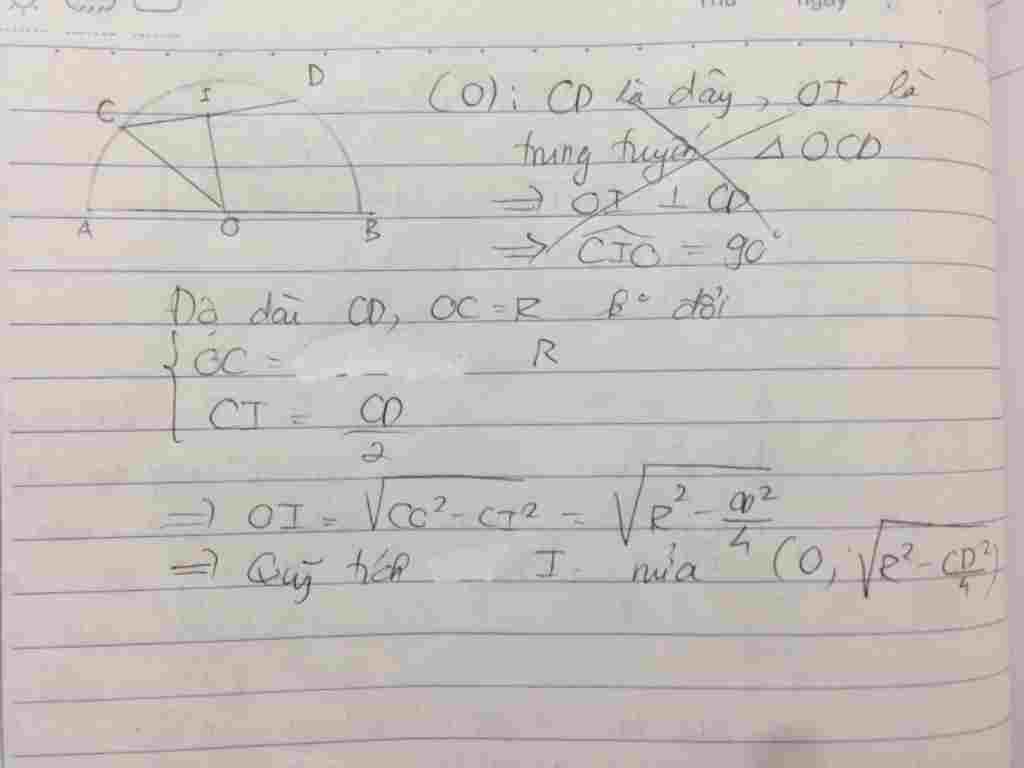 Thứ ngày
C I D
A O B
(O): CD là dây, OI là
trung tuyến Δ OCD
=> OI ⊥ CD
=> CIO = 90°
Độ dài CD, OC = R k° đổi
OC = R
CI = CD/2
=> OI = √OC² - CI² = √R² - CD²/4
=> Quỹ tích I nửa (O, √R² - CD²/4)